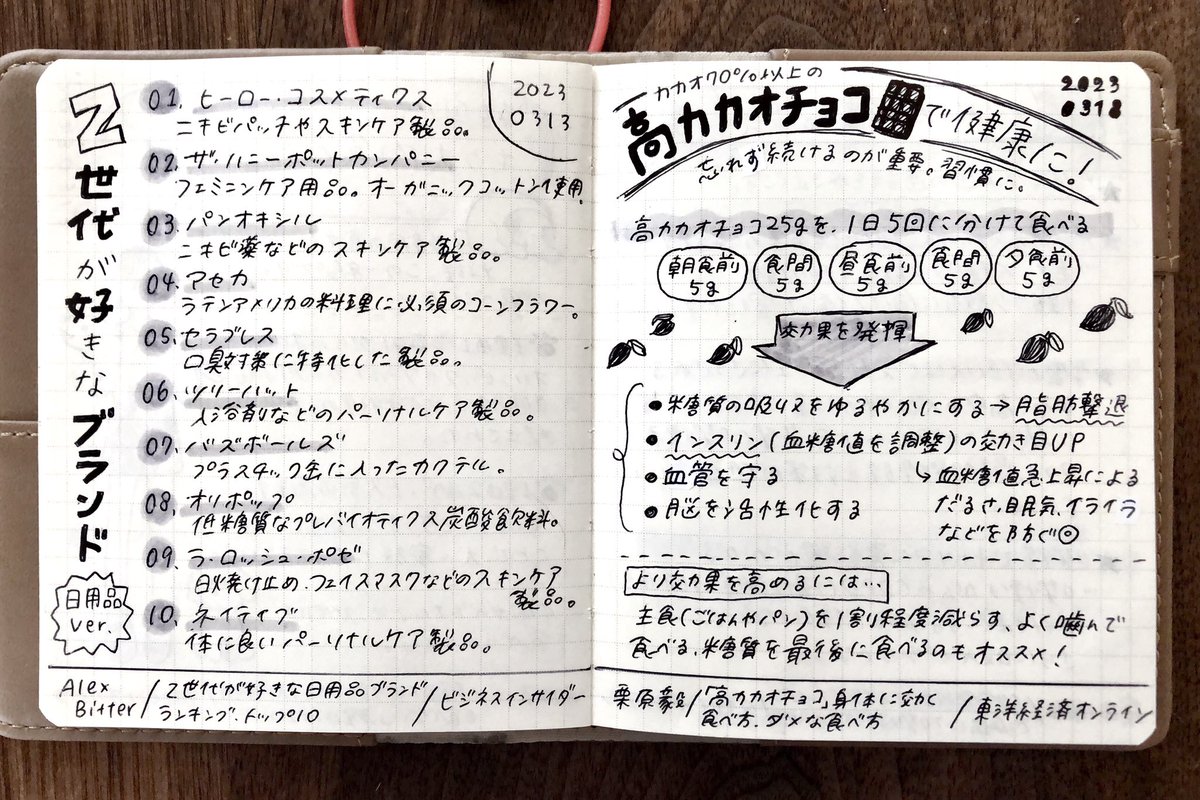 Z世代が好きなブランド
日用品
ver.
2023
0313
01. ヒーロー・コスメティクス
ニキビパッチやスキンケア製品。
02. ザ・ハニーポットカンパニー
フェミニンケア用品。オーガニックコットン使用。
03. パンオキシル
ニキビ薬などのスキンケア製品。
04. アセカ
ラテンアメリカの料理に必須のコーンフラワー。
05. セラブレス
口臭対策に特化した製品。
06. ツリーハット
入浴剤などのパーソナルケア製品。
07. バズボールズ
プラスチック缶に入ったカクテル。
08. オリポップ
低糖質なプレバイオティクス炭酸飲料。
09. ラ・ロッシュ・ポゼ
日焼け止め、フェイスマスクなどのスキンケア
製品。
10. ネイティブ
体に良いパーソナルケア製品。
Alex
Bitter/Z世代が好きな日用品ブランド
ランキング、トップ10/ビジネスインサイダー
カカオ70%以上の
高カカオチョコで健康に!
忘れず続けるのが重要。習慣に。
2023
0318
高カカオチョコ25gを、1日5回に分けて食べる
朝食前
5g
食間
5g
昼食前
5g
食間
5g
夕食前
5g
効果を発揮
●糖質の吸収をゆるやかにする→脂肪撃退
●インスリン(血糖値を調整)の効き目UP
●血管を守る
↳血糖値急上昇による
だるさ、眠気、イライラ
などを防ぐ◎
●脳を活性化する
より効果を高めるには…
主食(ごはんやパン)を1割程度減らす、よく噛んで
食べる、糖質を最後に食べるのもオススメ!
栗原毅/「高カカオチョコ」身体に効く
食べ方、ダメな食べ方/東洋経済オンライン